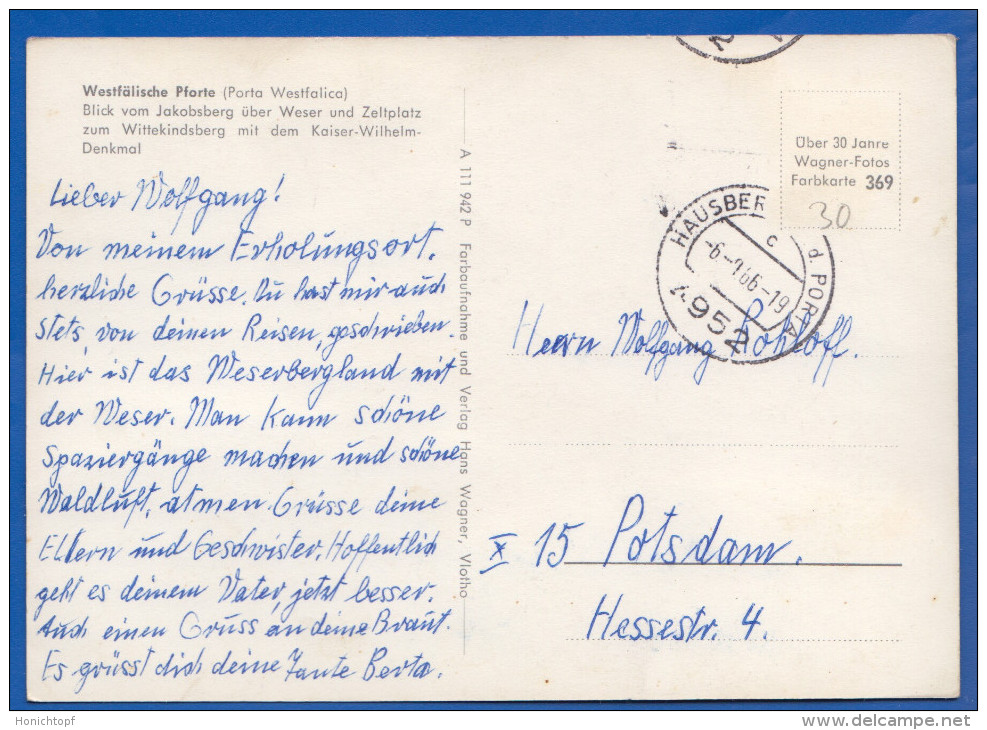 Westfälische Pforte (Porta Westfalica)
Blick vom Jakobsberg über Weser und Zeltplatz
zum Wittekindsberg mit dem Kaiser-Wilhelm-
Denkmal
Lieber Wolfgang!
Von meinem Erholungsort.
herzliche Grüsse. Du hast mir auch
stets von deinen Reisen, geschrieben.
Hier ist das Weserbergland mit
der Weser. Man kann schöne
Spaziergänge machen und schöne
Waldluft, atmen. Grüsse deine
Eltern und Geschwister. Hoffentlich
geht es deinem Vater, jetzt besser.
Auch einen Gruss an deine Braut.
Es grüsst dich deine Tante Berta.
A 111 942 P Farbaufnahme und Verlag Hans Wagner, Vlotho
Über 30 Jahre
Wagner-Fotos
Farbkarte 369
30
HAUSBER
d. PORTA
c
4952
Herrn Wolfgang Rohloff.
X 15 Potsdam.
Hessestr. 4.
Honichtopf
http://www.delcampe.net